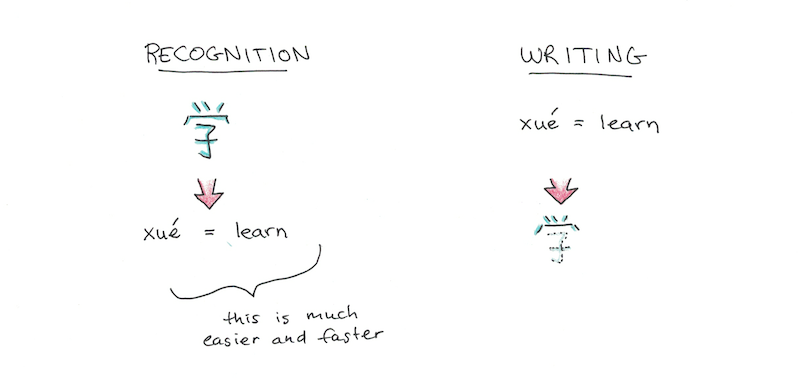 RECOGNITION
学
xué = learn
this is much
easier and faster
WRITING
xué = learn
学